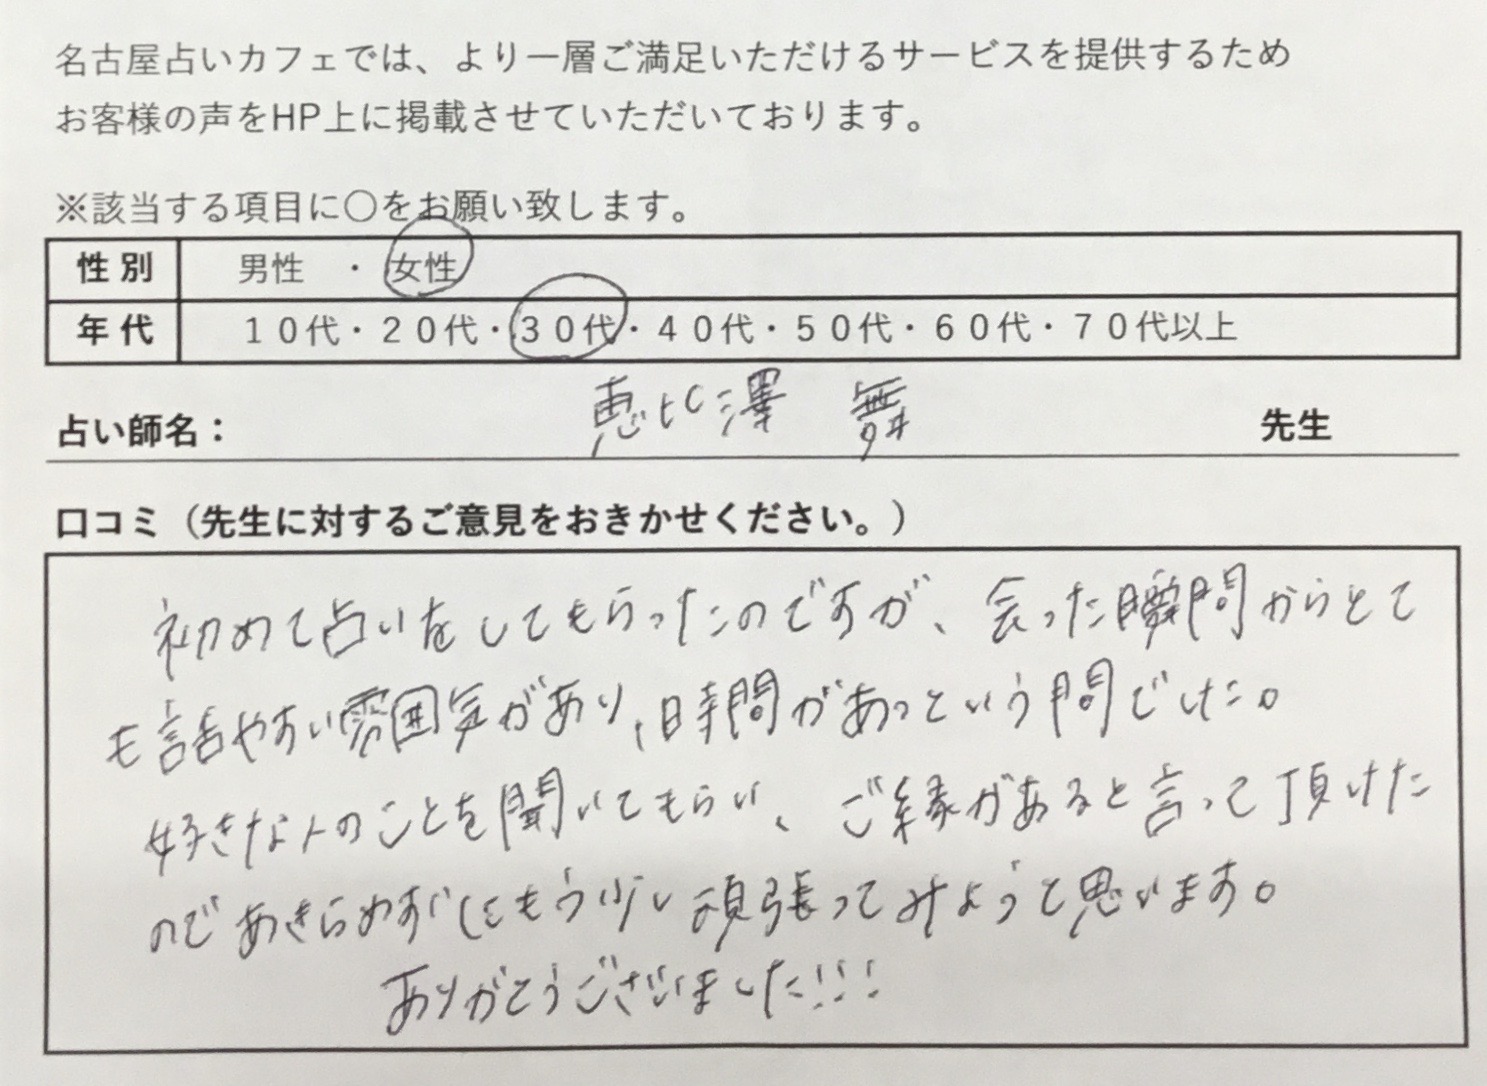 名古屋占いカフェでは、より一層ご満足いただけるサービスを提供するため
お客様の声をHP上に掲載させていただいております。
※該当する項目に〇をお願い致します。
性別 男性 ・ 女性
年代 10代・20代・30代・40代・50代・60代・70代以上
占い師名： 恵比澤 舞 先生
口コミ（先生に対するご意見をおきかせください。）
初めて占いをしてもらったのですが、会った瞬間からとて
も話やすい雰囲気があり、時間があっという間でした。
好きな人のことを聞いてもらい、ご縁があると言って頂けた
のであきらめずにもう少し頑張ってみようと思います。
ありがとうございました!!!